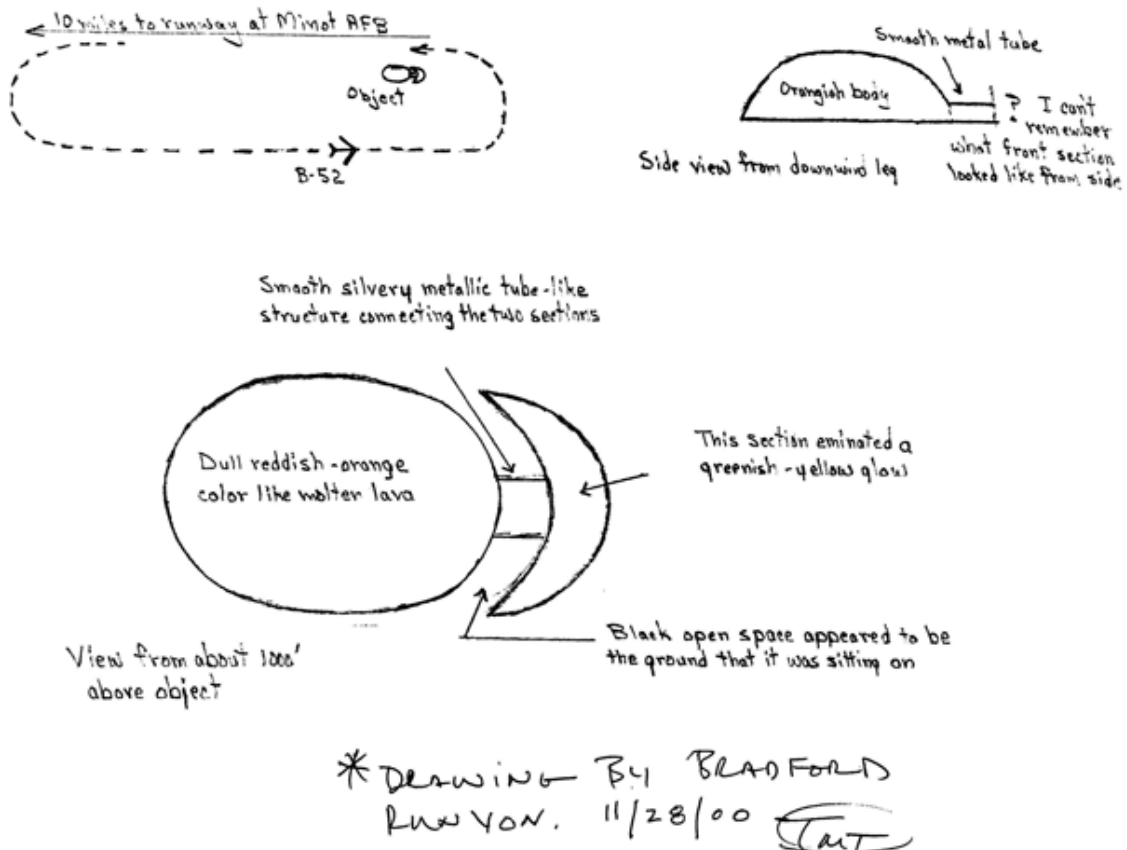 10 miles to runway at Minot AFB
Object
B-52
Smooth metal tube
Orangish body
? I can't
remember
what front section
looked like from side
Side view from downwind leg
Smooth silvery metallic tube-like
structure connecting the two sections
Dull reddish-orange
color like molten lava
This section eminated a
greenish-yellow glow
Black open space appeared to be
the ground that it was sitting on
View from about 1000'
above object
* DRAWING BY BRADFORD
RUNYON. 11/28/00